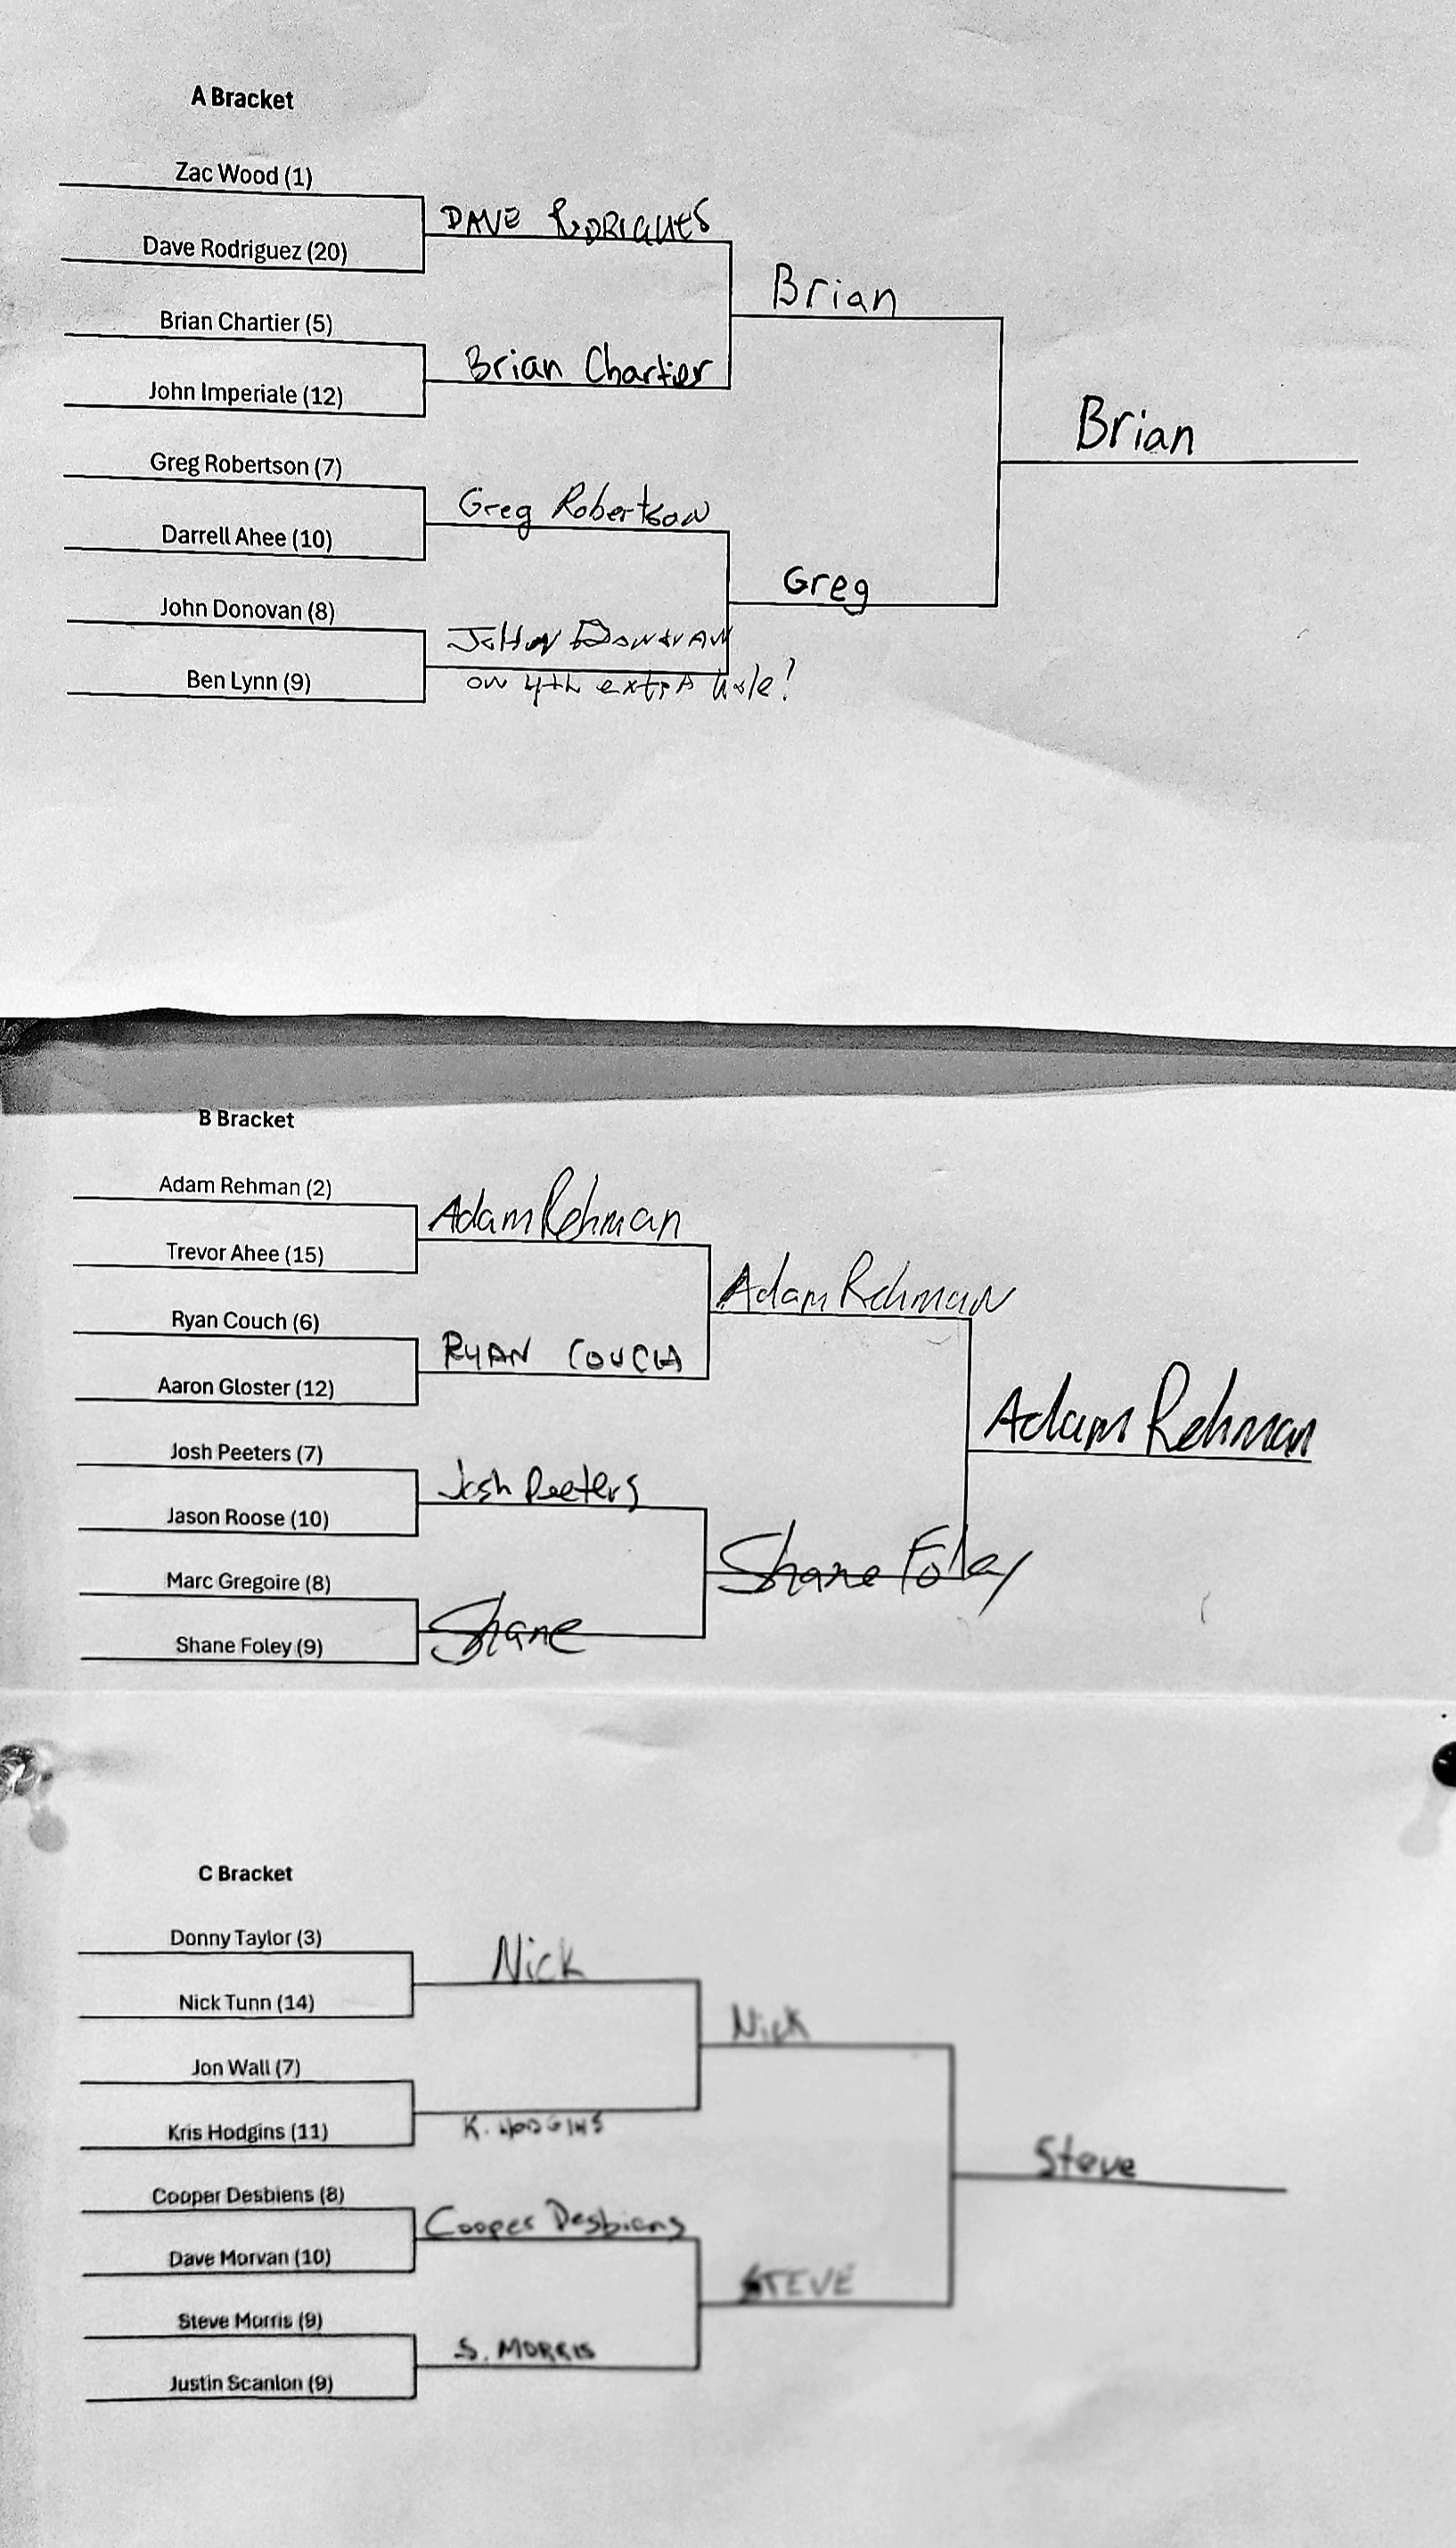 A Bracket
Zac Wood (1)
DAVE RODRIGUES
Dave Rodriguez (20)
Brian
Brian Chartier (5)
Brian Chartier
John Imperiale (12)
Brian
Greg Robertson (7)
Greg Robertson
Darrell Ahee (10)
Greg
John Donovan (8)
John Donovan
on 4th extra hole!
Ben Lynn (9)
B Bracket
Adam Rehman (2)
Adam Rehman
Trevor Ahee (15)
Adam Rehman
Ryan Couch (6)
RYAN COUCH
Aaron Gloster (12)
Adam Rehman
Josh Peeters (7)
Josh Peeters
Jason Roose (10)
Shane Foley
Marc Gregoire (8)
Shane
Shane Foley (9)
C Bracket
Donny Taylor (3)
Nick
Nick Tunn (14)
Nick
Jon Wall (7)
K. HODGINS
Kris Hodgins (11)
Steve
Cooper Desbiens (8)
Cooper Desbiens
Dave Morvan (10)
STEVE
Steve Morris (9)
S. MORRIS
Justin Scanlon (9)